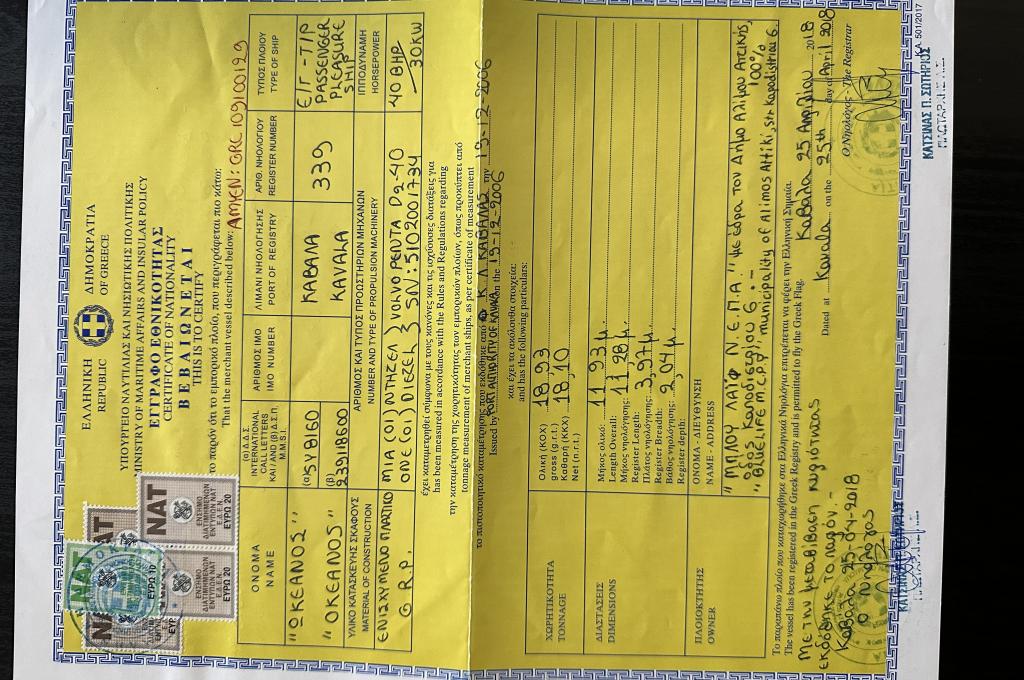 ΕΛΛΗΝΙΚΗ ΔΗΜΟΚΡΑΤΙΑ
REPUBLIC OF GREECE
ΥΠΟΥΡΓΕΙΟ ΝΑΥΤΙΛΙΑΣ ΚΑΙ ΝΗΣΙΩΤΙΚΗΣ ΠΟΛΙΤΙΚΗΣ
MINISTRY OF MARITIME AFFAIRS AND INSULAR POLICY
ΕΓΓΡΑΦΟ ΕΘΝΙΚΟΤΗΤΑΣ
CERTIFICATE OF NATIONALITY
ΒΕΒΑΙΩΝΕΤΑΙ
THIS IS TO CERTIFY
το παρόν ότι το εμπορικό πλοίο, που περιγράφεται πιο κάτω:
That the merchant vessel described below: ΑΜΥΕΝ: GRC 109100129
ΝΑΤ
ΕΥΡΩ 10
ΝΑΤ
ΕΝΣΗΜΟ
ΔΙΑΤΙΜΗΜΕΝΩΝ
ΕΝΤΥΠΩΝ ΝΑΤ
Ε.Δ.Ε.Ν.
ΕΥΡΩ 20
ΕΝΣΗΜΟ
ΔΙΑΤΙΜΗΜΕΝΩΝ
ΕΝΤΥΠΩΝ ΝΑΤ
Ε.Δ.Ε.Ν.
ΕΥΡΩ 20
ΟΝΟΜΑ
NAME
(α) Δ.Δ.Σ.
INTERNATIONAL
CALL LETTERS
ΚΑΙ / AND (β) Δ.Σ.Π.
M.M.S.I.
ΑΡΙΘΜΟΣ ΙΜΟ
IMO NUMBER
ΛΙΜΑΝΙ ΝΗΟΛΟΓΗΣΗΣ
PORT OF REGISTRY
ΑΡΙΘ. ΝΗΟΛΟΓΙΟΥ
REGISTER NUMBER
ΤΥΠΟΣ ΠΛΟΙΟΥ
TYPE OF SHIP
"ΩΚΕΑΝΟΣ"
"OKEANOS"
(α) SY8160
(β)
239118600
ΚΑΒΑΛΑ
KAVALA
339
Ε/Γ - Τ/Ρ
PASSENGER
PLEASURE
SHIP
ΥΛΙΚΟ ΚΑΤΑΣΚΕΥΗΣ ΣΚΑΦΟΥΣ
MATERIAL OF CONSTRUCTION
ΑΡΙΘΜΟΣ ΚΑΙ ΤΥΠΟΣ ΠΡΟΩΣΤΗΡΙΩΝ ΜΗΧΑΝΩΝ
NUMBER AND TYPE OF PROPULSION MACHINERY
ΙΠΠΟΔΥΝΑΜΗ
HORSEPOWER
ΕΝΙΣΧΥΜΕΝΟ ΠΛΑΣΤΙΚΟ
G.R.P.
ΜΙΑ (01) ΝΤΗΖΕΛ } VOLVO PENTA D2-40
ONE (01) DIESEL } S/N: 5102001734
40 BHP
30KW
έχει καταμετρηθεί σύμφωνα με τους κανόνες και τις ισχύουσες διατάξεις για
has been measured in accordance with the Rules and Regulations regarding
την καταμέτρηση της χωρητικότητας των εμπορικών πλοίων, όπως προκύπτει από
tonnage measurement of merchant ships, as per certificate of measurement
το πιστοποιητικό καταμέτρησης που εκδόθηκε από Κ Λ ΚΑΒΑΛΑΣ την 19-12-2006
Issued by PORT AUTHORITY OF KAVALA on the 19-12-2006
και έχει τα ακόλουθα στοιχεία:
and has the following particulars:
ΧΩΡΗΤΙΚΟΤΗΤΑ
TONNAGE
Ολική (ΚΟΧ) 18,93
gross (g.r.t.)
Καθαρή (ΚΚΧ) 18,10
Net (n.r.t.)
ΔΙΑΣΤΑΣΕΙΣ
DIMENSIONS
Μήκος ολικό: 11,93 μ.
Length Overall:
Μήκος νηολόγησης: 11,28 μ.
Register Length:
Πλάτος νηολόγησης: 3,97 μ.
Register Breadth:
Βάθος νηολόγησης: 2,04 μ.
Register depth:
ΠΛΟΙΟΚΤΗΤΗΣ
OWNER
ΟΝΟΜΑ - ΔΙΕΥΘΥΝΣΗ
NAME - ADDRESS
"ΜΠΛΟΥ ΛΑΪΦ Ν.Ε.Π.Α" με έδρα τον Δήμο Αλίμου Αττικής,
οδός Καποδιστρίου 6.- 100%
"BLUE LIFE M.C.P.Y", municipality of Alimos Attiki, str. Kapodistriou 6.
Το παραπάνω πλοίο που καταχωρήθηκε στα Ελληνικά Νηολόγια επιτρέπεται να φέρει την Ελληνική Σημαία.
The vessel has been registered in the Greek Registry and is permitted to fly the Greek Flag.
Με την μεταβίβαση πλοιοκτησίας
εκδόθηκε το παρόν.-
Καβάλα 25-04-2018
Ο Νηολόγος
Καβάλα 25 Απριλίου 2018
Dated at Kavala on the 25th day of April 2018
Ο Νηολόγος - The Registrar
ΚΑΤΣΙΝΑΣ Π. ΣΩΤΗΡΙΟΣ
ΠΛΩΤΑΡΧΗΣ Λ.Σ.
501/2017